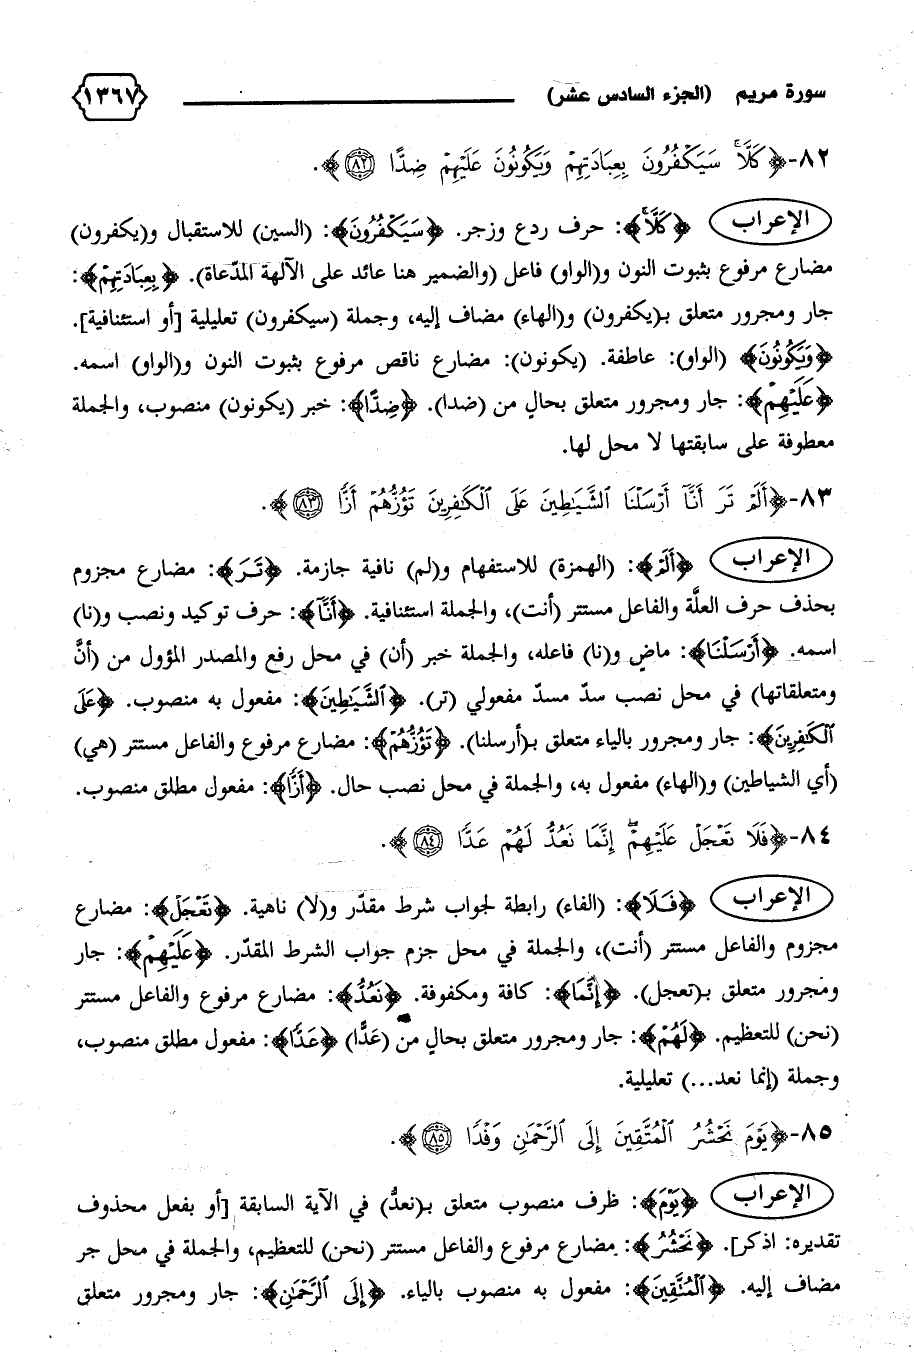 سورة مريم (الجزء السادس عشر) ١٣٦٧
٨٢-﴿كَلَّا ۚ سَيَكْفُرُونَ بِعِبَادَتِهِمْ وَيَكُونُونَ عَلَيْهِمْ ضِدًّا ٨٢﴾.
الإعراب ﴿كَلَّا ۚ﴾: حرف ردع وزجر. ﴿سَيَكْفُرُونَ﴾: (السين) للاستقبال و(يكفرون)
مضارع مرفوع بثبوت النون و(الواو) فاعل (والضمير هنا عائد على الآلهة المدّعاة). ﴿بِعِبَادَتِهِمْ﴾:
جار ومجرور متعلق بـ(يكفرون) و(الهاء) مضاف إليه، وجملة (سيكفرون) تعليلية [أو استئنافية].
﴿وَيَكُونُونَ﴾ (الواو): عاطفة. (يكونون): مضارع ناقص مرفوع بثبوت النون و(الواو) اسمه.
﴿عَلَيْهِمْ﴾: جار ومجرور متعلق بحالٍ من (ضدا). ﴿ضِدًّا﴾: خبر (يكونون) منصوب، والجملة
معطوفة على سابقتها لا محل لها.
٨٣-﴿أَلَمْ تَرَ أَنَّآ أَرْسَلْنَا ٱلشَّيَٰطِينَ عَلَى ٱلْكَٰفِرِينَ تَؤُزُّهُمْ أَزًّا ٨٣﴾.
الإعراب ﴿أَلَمْ﴾: (الهمزة) للاستفهام و(لم) نافية جازمة. ﴿تَرَ﴾: مضارع مجزوم
بحذف حرف العلَّة والفاعل مستتر (أنت)، والجملة استئنافية. ﴿أَنَّآ﴾: حرف توكيد ونصب و(نا)
اسمه. ﴿أَرْسَلْنَا﴾: ماضٍ و(نا) فاعله، والجملة خبر (أن) في محل رفع والمصدر المؤول من (أنَّ
ومتعلقاتها) في محل نصب سدّ مسدّ مفعولي (تر). ﴿ٱلشَّيَٰطِينَ﴾: مفعول به منصوب. ﴿عَلَى
ٱلْكَٰفِرِينَ﴾: جار ومجرور بالياء متعلق بـ(أرسلنا). ﴿تَؤُزُّهُمْ﴾: مضارع مرفوع والفاعل مستتر (هي)
(أي الشياطين) و(الهاء) مفعول به، والجملة في محل نصب حال. ﴿أَزًّا﴾: مفعول مطلق منصوب.
٨٤-﴿فَلَا تَعْجَلْ عَلَيْهِمْ ۖ إِنَّمَا نَعُدُّ لَهُمْ عَدًّا ٨٤﴾.
الإعراب ﴿فَلَا﴾: (الفاء) رابطة لجواب شرط مقدّر و(لا) ناهية. ﴿تَعْجَلْ﴾: مضارع
مجزوم والفاعل مستتر (أنت)، والجملة في محل جزم جواب الشرط المقدّر. ﴿عَلَيْهِمْ﴾: جار
ومجرور متعلق بـ(تعجل). ﴿إِنَّمَا﴾: كافة ومكفوفة. ﴿نَعُدُّ﴾: مضارع مرفوع والفاعل مستتر
(نحن) للتعظيم. ﴿لَهُمْ﴾: جار ومجرور متعلق بحالٍ من (عَدًّا) ﴿عَدًّا﴾: مفعول مطلق منصوب،
وجملة (إنما نعد...) تعليلية.
٨٥-﴿يَوْمَ نَحْشُرُ ٱلْمُتَّقِينَ إِلَى ٱلرَّحْمَٰنِ وَفْدًا ٨٥﴾.
الإعراب ﴿يَوْمَ﴾: ظرف منصوب متعلق بـ(نعدُّ) في الآية السابقة [أو بفعل محذوف
تقديره: اذكر]. ﴿نَحْشُرُ﴾: مضارع مرفوع والفاعل مستتر (نحن) للتعظيم، والجملة في محل جر
مضاف إليه. ﴿ٱلْمُتَّقِينَ﴾: مفعول به منصوب بالياء. ﴿إِلَى ٱلرَّحْمَٰنِ﴾: جار ومجرور متعلق